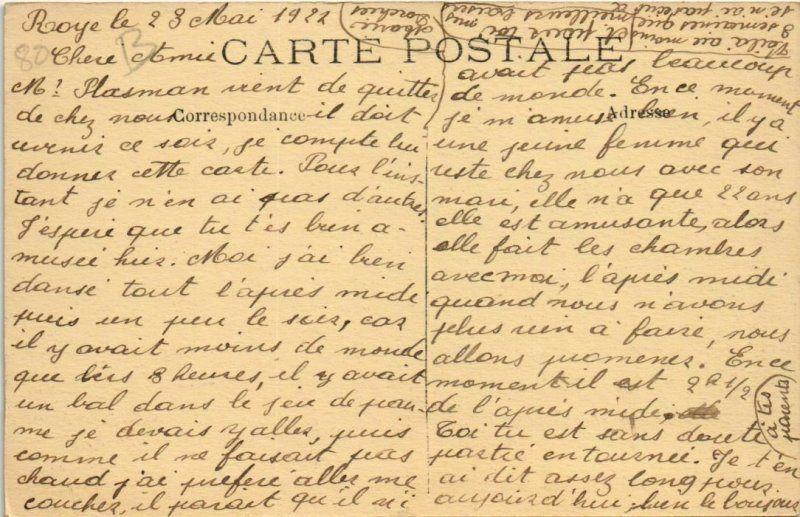 Roye le 23 Mai 1922
80 B
CARTE POSTALE
Correspondance
Adresse
Chere Amie
Mr Plasman vient de quitter
de chez nous il doit
venir ce soir, je compte lui
donner cette carte. Pour l'ins-
tant je n'en ai pas d'autres.
J'espère que tu t'es bien a-
musée hier. Moi j'ai bien
dansé tout l'après midi
puis un peu le soir, car
il y avait moins de monde
que vers 8 heures, il y avait
un bal dans le jeu de pau-
me je devais y aller, puis
comme il ne faisait pas
chaud j'ai préféré aller me
coucher, il parait qu'il n'i
avait pas beaucoup
de monde. En ce moment
je m'amuse bien, il y a
une jeune femme qui
reste chez nous avec son
mari, elle n'a que 22 ans
elle est amusante, alors
elle fait les chambres
avec moi, l'après midi
quand nous n'avons
plus rien à faire, nous
allons promener. En ce
moment il est 2h 1/2
de l'après midi.
Toi tu est sans doute
partie en tournée. Je t'en
ai dit assez long pour
aujourd'hui, bien le bonjour
à tes
parents
et pour toi
mes meilleurs baisers
Voilà au moins
3 semaines que